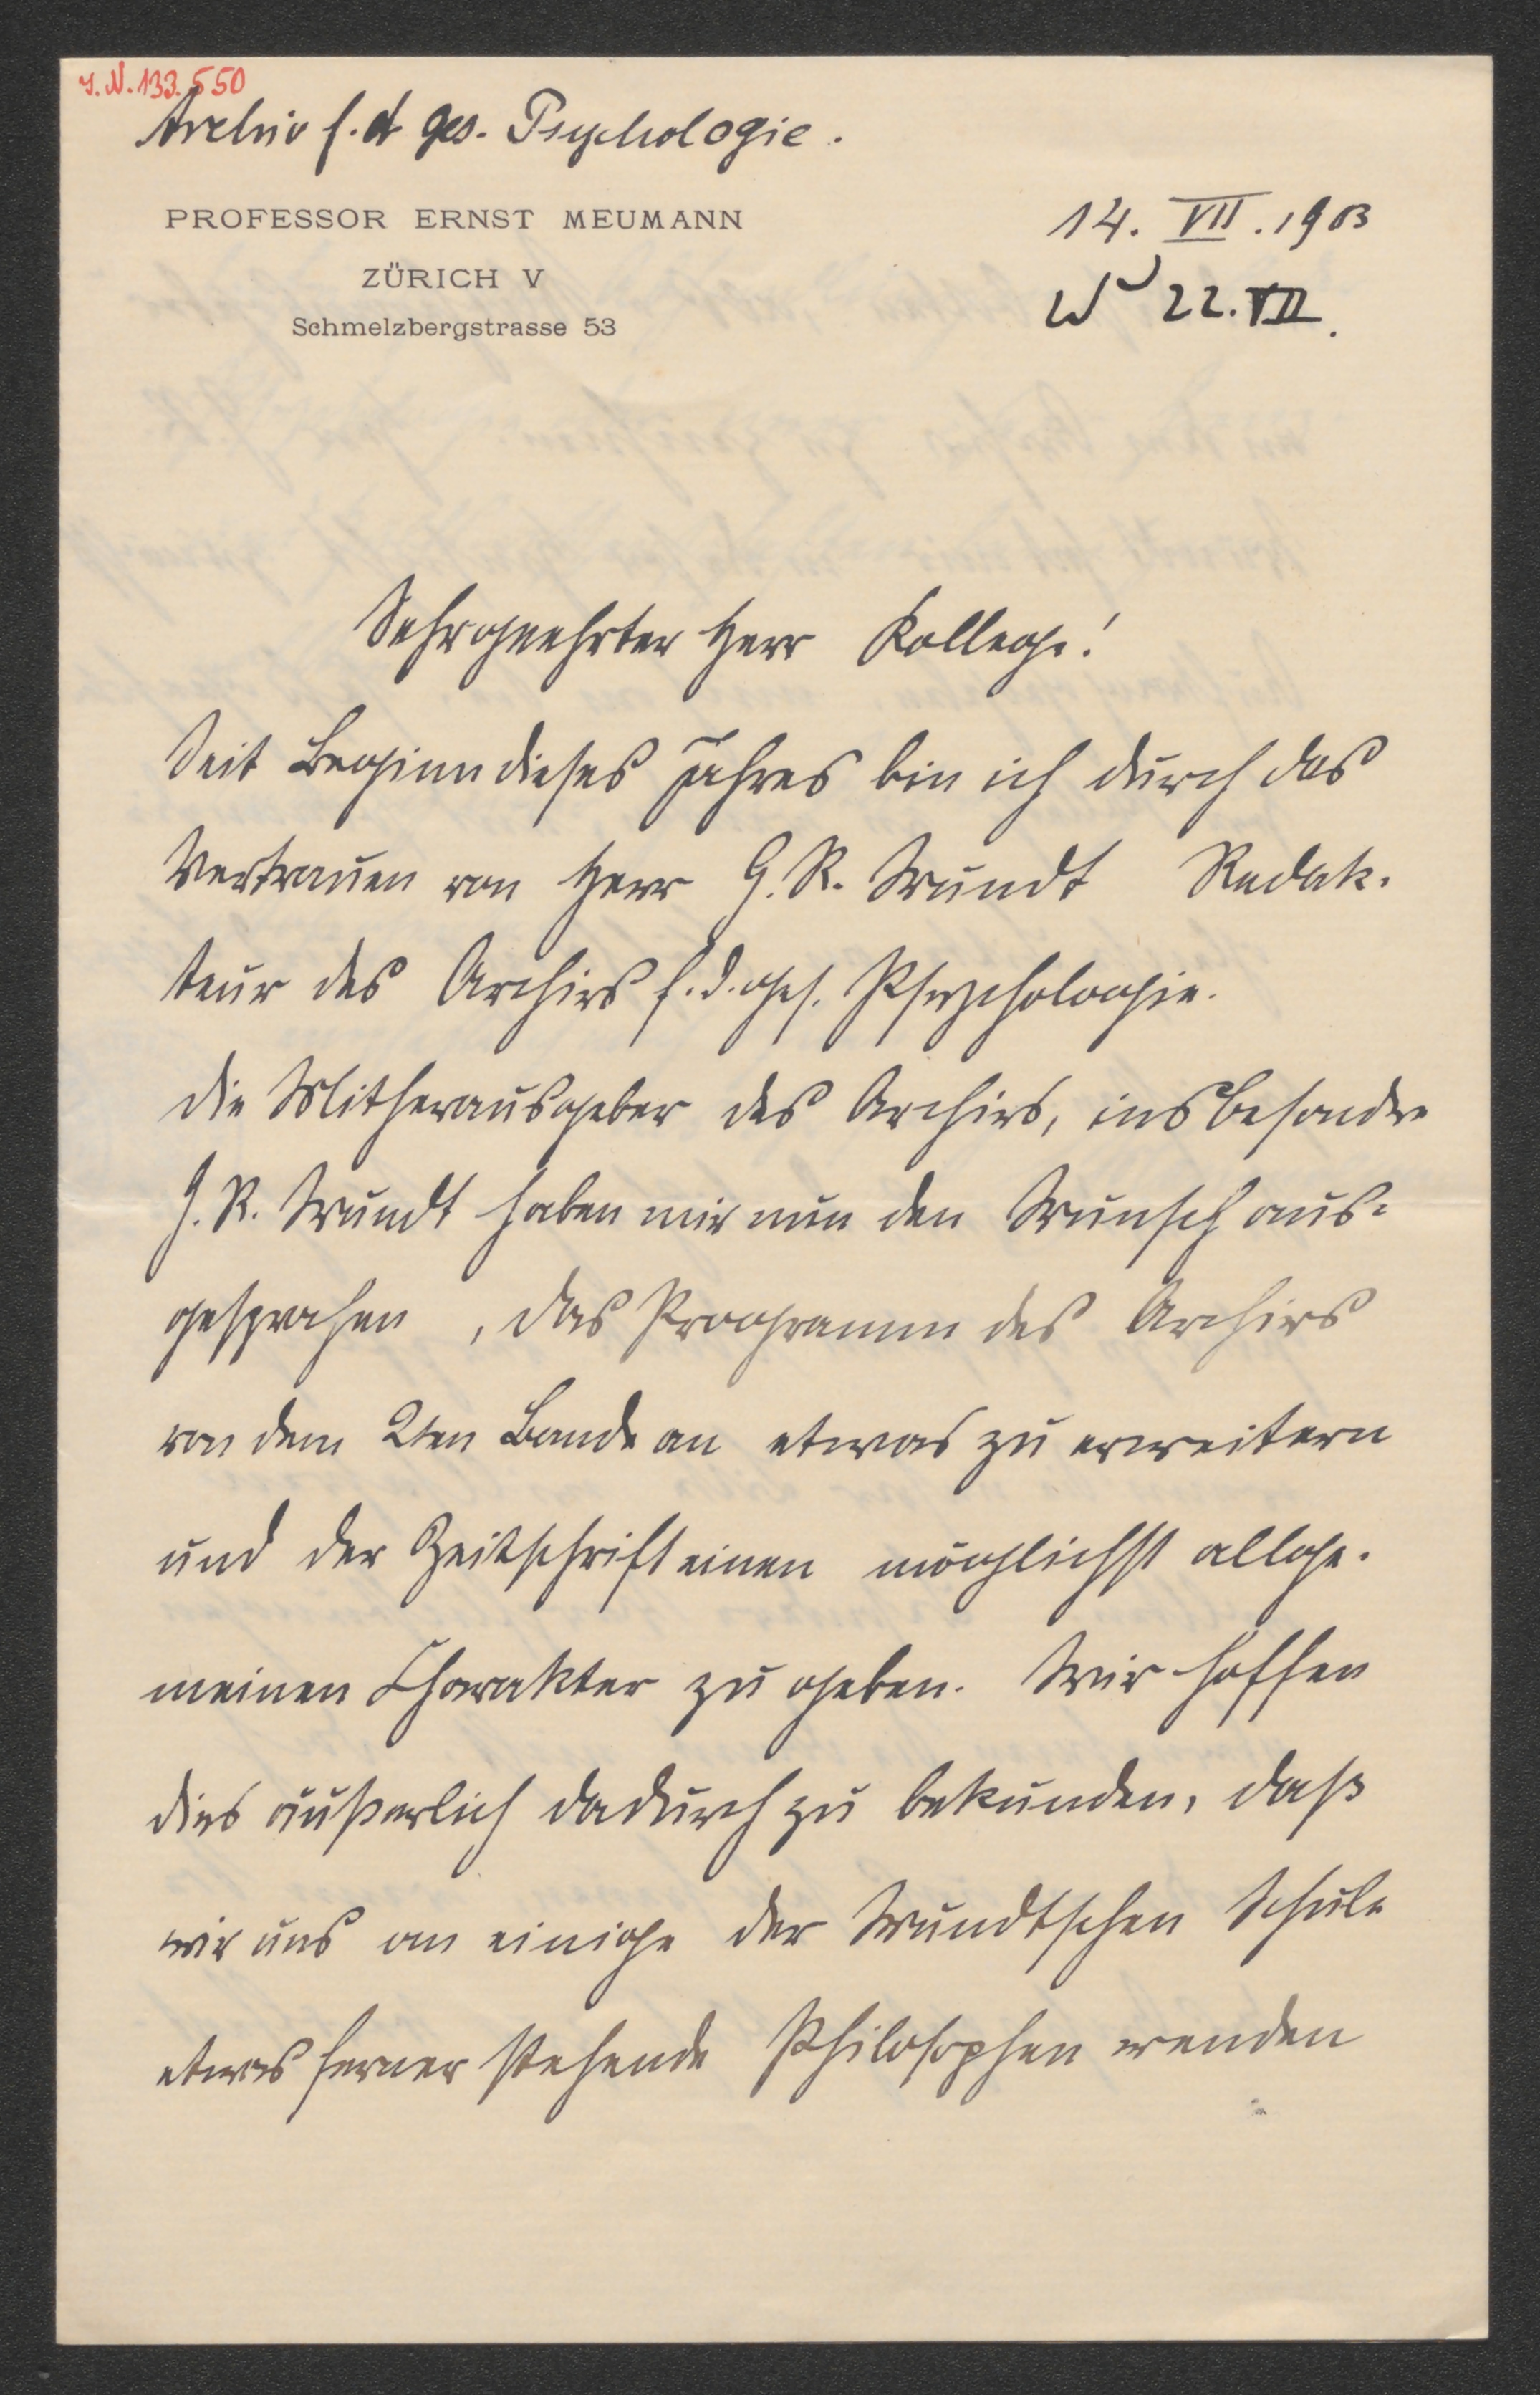 J. N. 133.550
Archiv f. d ges. Psychologie.
PROFESSOR ERNST MEUMANN
ZÜRICH V
Schmelzbergstrasse 53
14. VII. 1903
W 22. VII.
Sehrgeehrter Herr Kollege!
Seit Beginn dieses Jahres bin ich durch das
Vertrauen von Herr G. R. Wundt Redak-
teur des Archivs f. d. ges. Psychologie.
Die Mitherausgeber des Archivs, insbesondre
G. R. Wundt haben mir nun den Wunsch aus-
gesprochen, das Programm des Archivs
von dem 2ten Bande an etwas zu erweitern
und der Zeitschrift einen möglichst allge-
meinen Charakter zu geben. Wir hoffen
dies äußerlich dadurch zu bekunden, daß
wir uns an einige der Wundtschen Schule
etwas ferner stehende Philosophen wenden